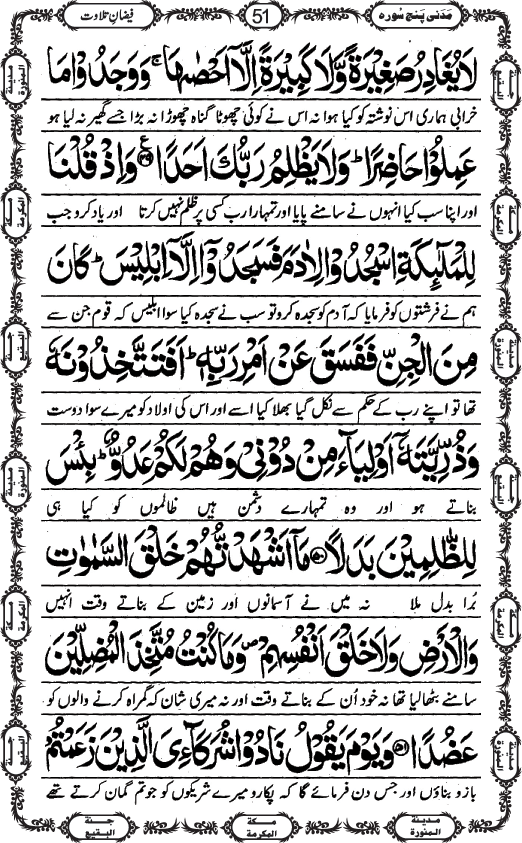 مَدَنی پَنج سُورہ
51
فیضانِ تلاوت
لَا یُغَادِرُ صَغِیْرَةً وَّلَا كَبِیْرَةً اِلَّاۤ اَحْصٰىهَاۚ وَوَجَدُوْا مَا
خرابی ہماری اس نوشتہ کو کیا ہوا نہ اس نے کوئی چھوٹا گناہ چھوڑا نہ بڑا جسے گھیر نہ لیا ہو
عَمِلُوْا حَاضِرًاؕ وَلَا یَظْلِمُ رَبُّكَ اَحَدًا۠﴿۴۹﴾ وَاِذْ قُلْنَا
اور اپنا سب کیا انہوں نے سامنے پایا اور تمہارا رب کسی پر ظلم نہیں کرتا اور یاد کرو جب
لِلْمَلٰٓىِٕكَةِ اسْجُدُوْا لِاٰدَمَ فَسَجَدُوْۤا اِلَّاۤ اِبْلِیْسَؕ كَانَ
ہم نے فرشتوں کو فرمایا کہ آدم کو سجدہ کرو تو سب نے سجدہ کیا سوا ابلیس کہ قوم جن سے
مِنَ الْجِنِّ فَفَسَقَ عَنْ اَمْرِ رَبِّهٖؕ اَفَتَتَّخِذُوْنَهٗ
تھا تو اپنے رب کے حکم سے نکل گیا بھلا کیا اسے اور اس کی اولاد کو میرے سوا دوست
وَذُرِّیَّتَهٗۤ اَوْلِیَآءَ مِنْ دُوْنِیْ وَهُمْ لَكُمْ عَدُوٌّؕ بِئْسَ
بناتے ہو اور وہ تمہارے دشمن ہیں ظالموں کو کیا ہی
لِلظّٰلِمِیْنَ بَدَلًا﴿۵۰﴾ مَاۤ اَشْهَدْتُّهُمْ خَلْقَ السَّمٰوٰتِ
بُرا بدل ملا نہ میں نے آسمانوں اور زمین کے بناتے وقت انہیں
وَالْاَرْضِ وَلَا خَلْقَ اَنْفُسِهِمْ۪ وَمَا كُنْتُ مُتَّخِذَ الْمُضِلِّیْنَ
سامنے بٹھا لیا تھا نہ خود اُن کے بناتے وقت اور نہ میری شان کہ گمراہ کرنے والوں کو
عَضُدًا﴿۵۱﴾ وَیَوْمَ یَقُوْلُ نَادُوْا شُرَكَآءِیَ الَّذِیْنَ زَعَمْتُمْ
بازو بناؤں اور جس دن فرمائے گا کہ پکارو میرے شریکوں کو جو تم گمان کرتے تھے
جنة البقیع
مكة المكرمة
مدینة المنورة